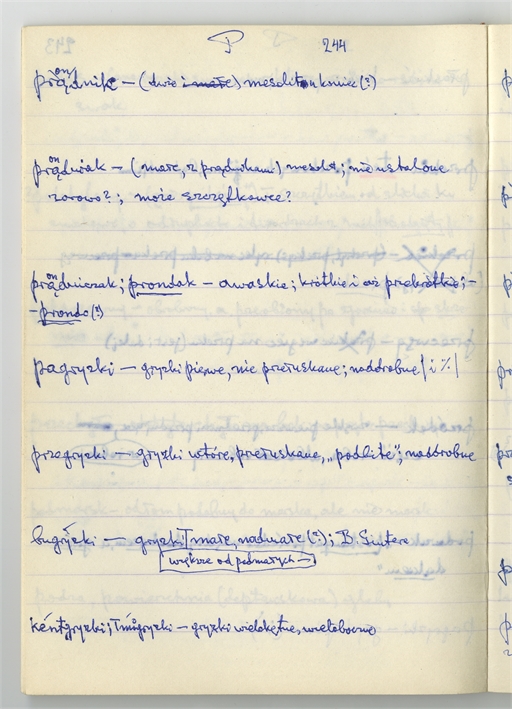 P 244
prądnik — (duże i małe) mezolit. koniec (?)
prądniak — (małe, z prądnikami) mezolit; nie ustalone
zorowo?; może szczęfkowce?
prądniczak; prondak — a waskie; krótkie i aż przekrótkie; –
– prondo (?)
pagryzki — gryzki piewe, nie przełuskane; naddrobne / i % /
przegryzki — gryzki wtóre, przełuskane, „podlite”; naddrobne
bugryzki — gryzki małe, nadmałe (?); B. Sintere
większe od podmałych —
kéntgryzki; gryzki — gryzki wielokętne, wieloboczne